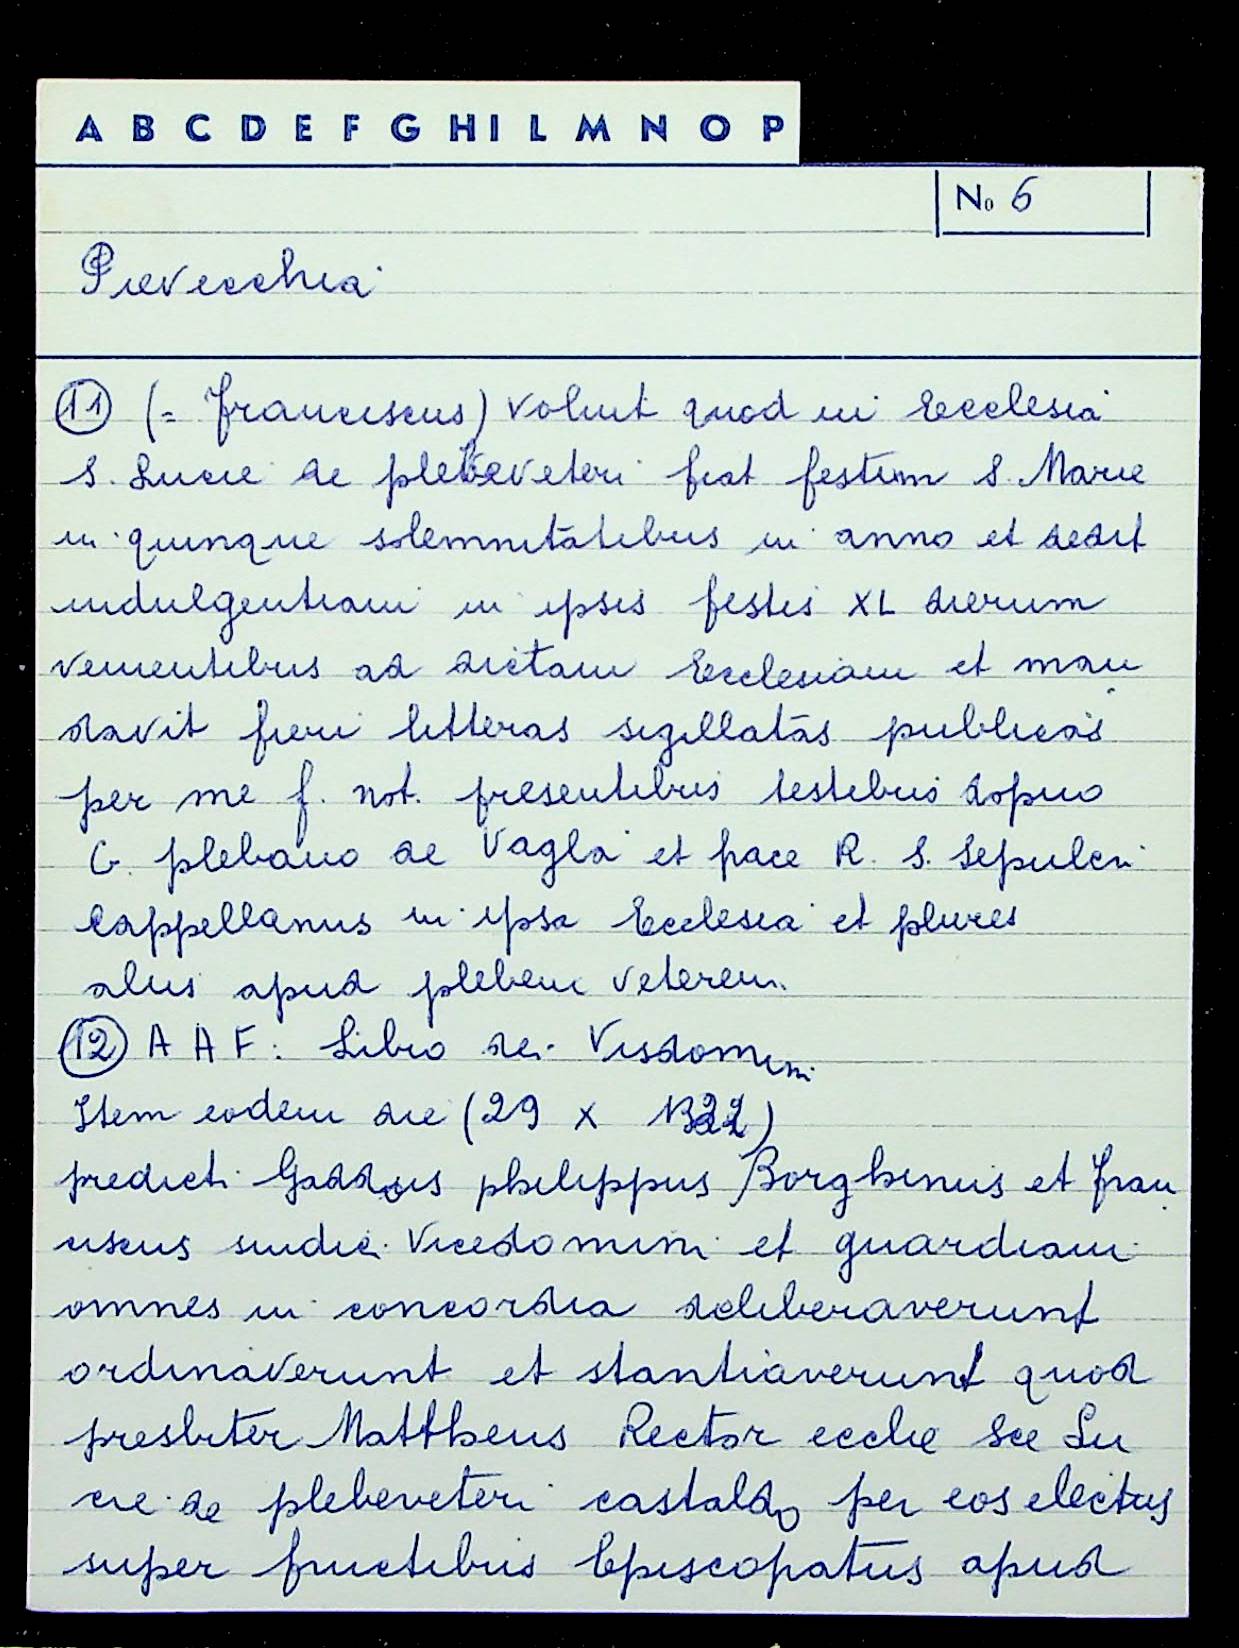 A B C D E F G H I L M N O P
No 6
Pievecchia
11 (= Franciscus) voluit quod in Ecclesia
S. Lucie de plebeveteri fiat festum S. Marie
in quinque solemnitatibus in anno et dedit
indulgentiam in ipsis festis XL dierum
venientibus ad dictam Ecclesiam et man
davit fieri litteras sigillatas publicas
per me f. not. presentibus testibus dopno
G. plebano de Vagla et pace R. S. Sepulcri
Cappellanus in ipsa Ecclesia et plures
aliis apud plebem veterem.
12 A A F: Libro dei Visdomini
Item eodem die (29 X 1322)
predicti Gaddus philippus Borghinus et Fran
ciscus sindici Vicedomini et guardiani
omnes in concordia deliberaverunt
ordinaverunt et stantiaverunt quod
presbiter Mattheus Rector ecclie Sce Lu
cie de plebeveteri castaldo per eos electus
super fructibus Episcopatus apud